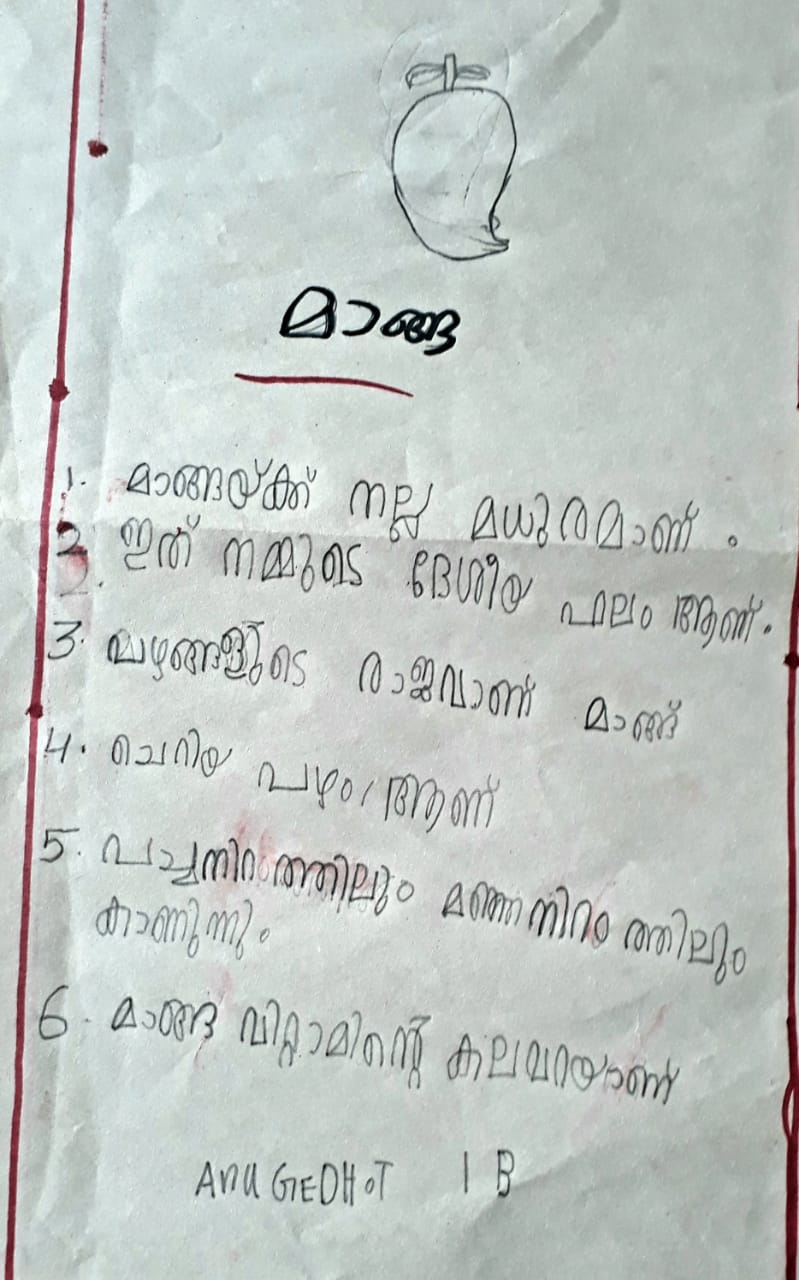 മാങ്ങ
1. മാങ്ങയ്ക്ക് നല്ല മധുരമാണ്.
2. ഇത് നമ്മുടെ ദേശീയ ഫലം ആണ്.
3. പഴങ്ങളുടെ രാജവാണ് മാങ്ങ്
4. ചെറിയ പഴം ആണ്
5. പച്ചനിറത്തിലും മഞ്ഞനിറം ത്തിലും
കാണുന്നും.
6. മാങ്ങ വിറ്റാമിന്റെ കലവറയാണ്
ANU GEDHOT 1 B